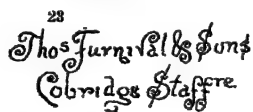 23
Thos Furnival & Sons
Cobridge Staffre